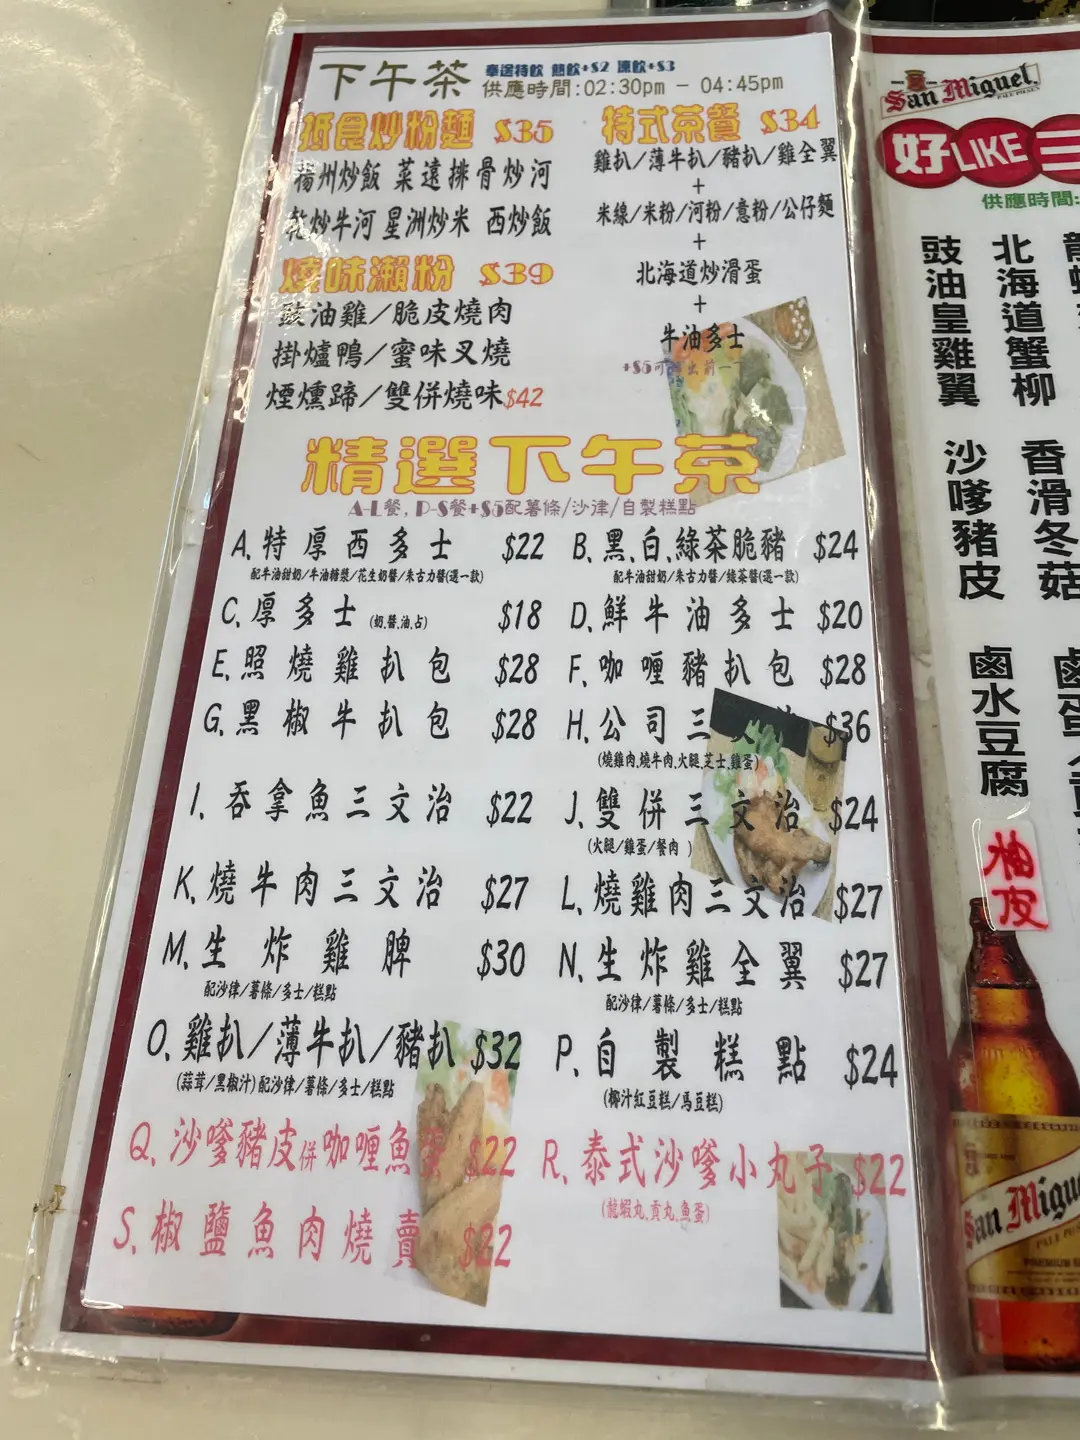 下午茶
奉送特飲 熱飲+$2 凍飲+$3
供應時間:02:30pm – 04:45pm
抵食炒粉麵 $35
揚州炒飯 菜遠排骨炒河
乾炒牛河 星洲炒米 西炒飯
燒味瀨粉 $39
豉油雞/脆皮燒肉
掛爐鴨/蜜味叉燒
煙燻蹄/雙併燒味$42
特式茶餐 $34
雞扒/薄牛扒/豬扒/雞全翼
+
米線/米粉/河粉/意粉/公仔麵
+
北海道炒滑蛋
+
牛油多士
精選下午茶
A-L餐, P-S餐+$5配薯條/沙律/自製糕點
A.特厚西多士 $22
配牛油甜奶/牛油糖漿/花生奶醬/朱古力醬(選一款)
B.黑.白.綠茶脆豬 $24
配牛油甜奶/朱古力醬/綠茶醬(選一款)
C.厚多士(奶.醬.油.占) $18
D.鮮牛油多士 $20
E.照燒雞扒包 $28
F.咖喱豬扒包 $28
G.黑椒牛扒包 $28
H.公司三文治 $36
(燒雞肉.燒牛肉.火腿.芝士.雞蛋)
I.吞拿魚三文治 $22
J.雙併三文治 $24
(火腿/雞蛋/餐肉 )
K.燒牛肉三文治 $27
L.燒雞肉三文治 $27
M.生炸雞脾 $30
配沙律/薯條/多士/糕點
N.生炸雞全翼 $27
配沙律/薯條/多士/糕點
O.雞扒/薄牛扒/豬扒 $32
(蒜茸/黑椒汁)配沙律/薯條/多士/糕點
P.自製糕點 $24
(椰汁紅豆糕/馬豆糕)
Q.沙嗲豬皮併咖喱魚蛋 $22
R.泰式沙嗲小丸子 $22
(龍蝦丸.貢丸.魚蛋)
S.椒鹽魚肉燒賣 $22
San Miguel
PALE PILSEN
好LIKE三
供應時間:
豉油皇雞翼
北海道蟹柳
沙嗲豬皮
香滑冬菇
鹵水豆腐
柚皮
San Migu